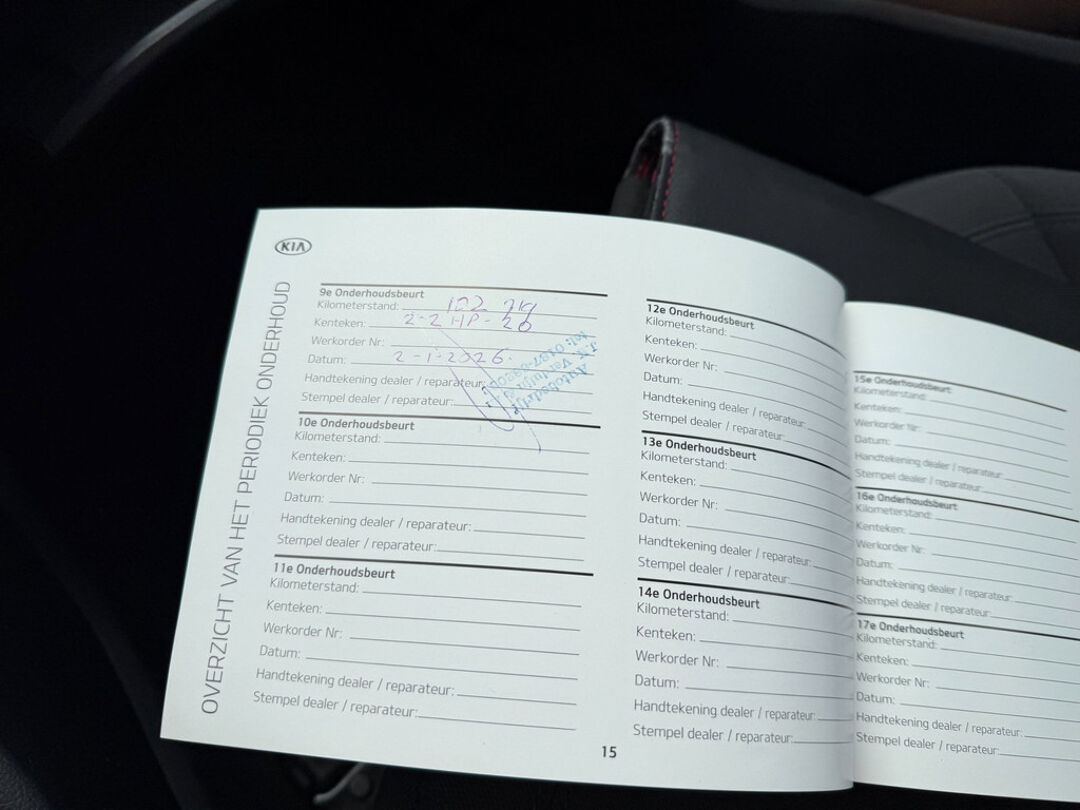 KIA
OVERZICHT VAN HET PERIODIEK ONDERHOUD
9e Onderhoudsbeurt
Kilometerstand: 102 719
Kenteken: 2-2 HP-20
Werkorder Nr:
Datum: 2-1-2026.
Handtekening dealer / reparateur:
Stempel dealer / reparateur:
Autobedrijf
10e Onderhoudsbeurt
Kilometerstand:
Kenteken:
Werkorder Nr:
Datum:
Handtekening dealer / reparateur:
Stempel dealer / reparateur:
11e Onderhoudsbeurt
Kilometerstand:
Kenteken:
Werkorder Nr:
Datum:
Handtekening dealer / reparateur:
Stempel dealer / reparateur:
12e Onderhoudsbeurt
Kilometerstand:
Kenteken:
Werkorder Nr:
Datum:
Handtekening dealer / reparateur:
Stempel dealer / reparateur:
13e Onderhoudsbeurt
Kilometerstand:
Kenteken:
Werkorder Nr:
Datum:
Handtekening dealer / reparateur:
Stempel dealer / reparateur:
14e Onderhoudsbeurt
Kilometerstand:
Kenteken:
Werkorder Nr:
Datum:
Handtekening dealer / reparateur:
Stempel dealer / reparateur:
15
15e Onderhoudsbeurt
Kilometerstand:
Kenteken:
Werkorder Nr:
Datum:
Handtekening dealer / reparateur:
Stempel dealer / reparateur:
16e Onderhoudsbeurt
Kilometerstand:
Kenteken:
Werkorder Nr:
Datum:
Handtekening dealer / reparateur:
Stempel dealer / reparateur:
17e Onderhoudsbeurt
Kilometerstand:
Kenteken:
Werkorder Nr:
Datum:
Handtekening dealer / reparateur:
Stempel dealer / reparateur: